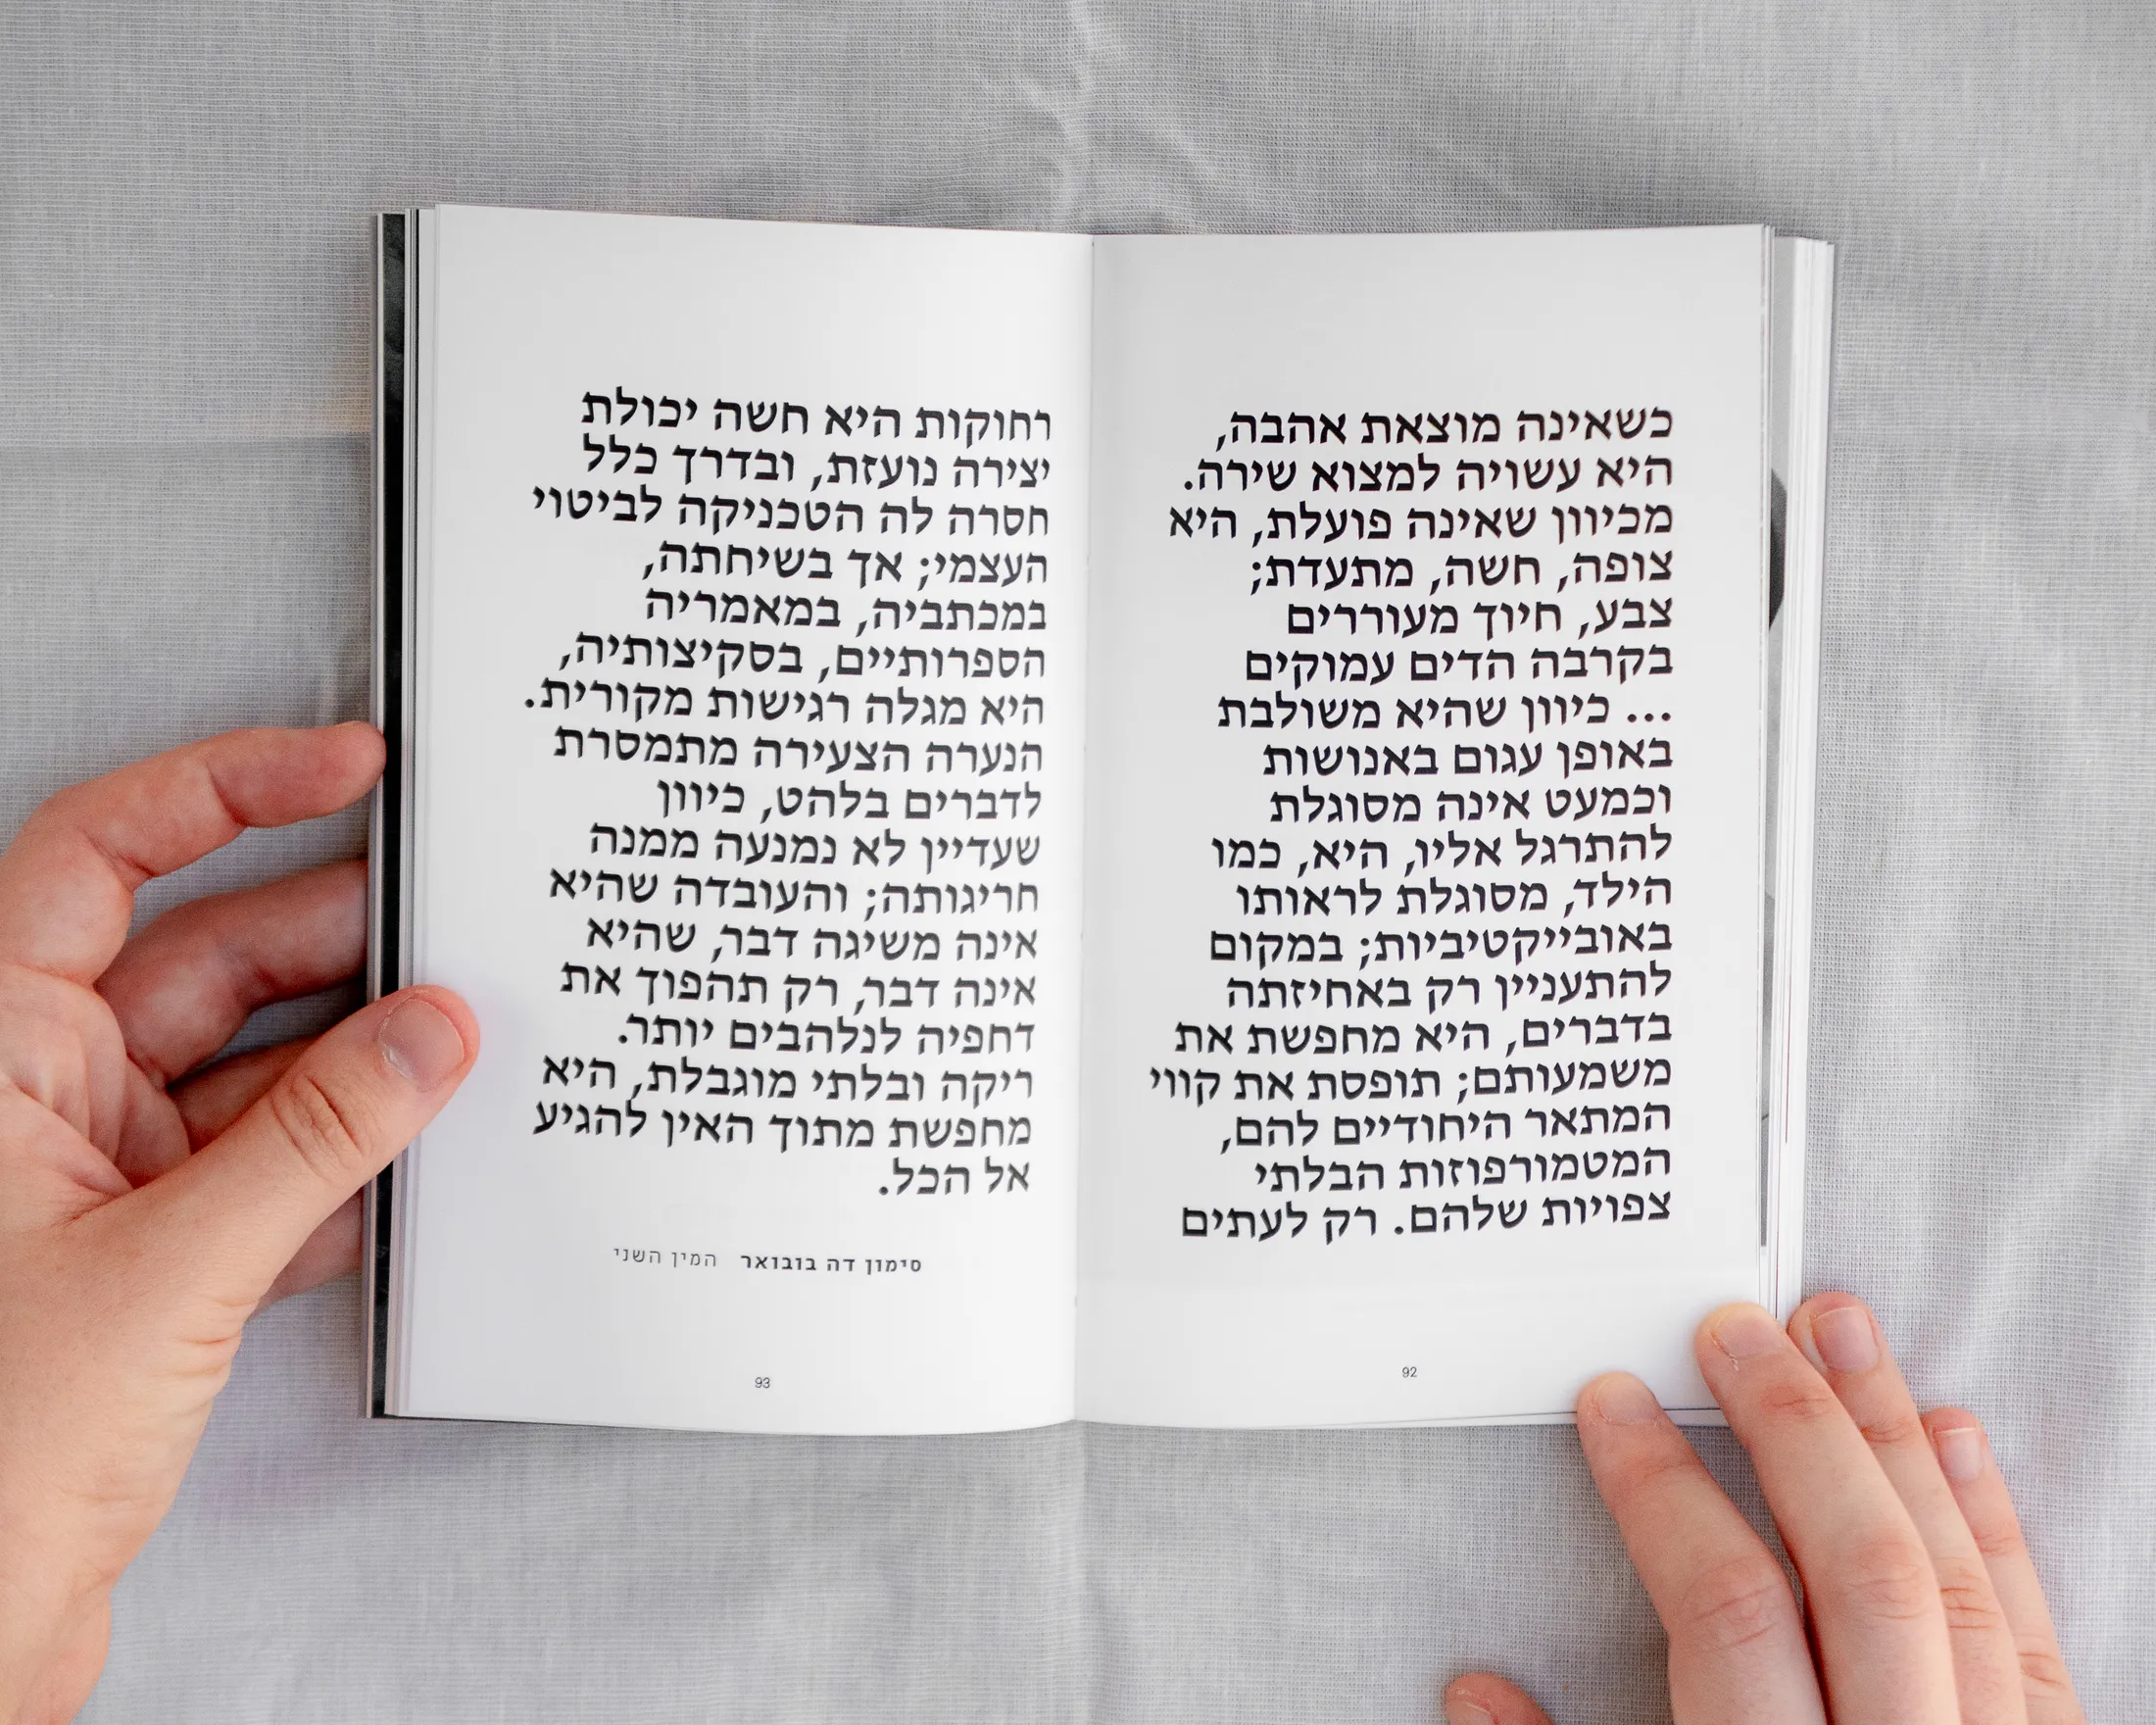 כשאינה מוצאת אהבה,
היא עשויה למצוא שירה.
מכיוון שאינה פועלת, היא
צופה, חשה, מתעדת;
צבע, חיוך מעוררים
בקרבה הדים עמוקים
... כיוון שהיא משולבת
באופן עגום באנושות
וכמעט אינה מסוגלת
להתרגל אליו, היא, כמו
הילד, מסוגלת לראותו
באובייקטיביות; במקום
להתעניין רק באחיזתה
בדברים, היא מחפשת את
משמעותם; תופסת את קווי
המתאר היחודיים להם,
המטמורפוזות הבלתי
צפויות שלהם. רק לעתים
92
רחוקות היא חשה יכולת
יצירה נועזת, ובדרך כלל
חסרה לה הטכניקה לביטוי
העצמי; אך בשיחתה,
במכתביה, במאמריה
הספרותיים, בסקיצותיה,
היא מגלה רגישות מקורית.
הנערה הצעירה מתמסרת
לדברים בלהט, כיוון
שעדיין לא נמנעה ממנה
חריגותה; והעובדה שהיא
אינה משיגה דבר, שהיא
אינה דבר, רק תהפוך את
דחפיה לנלהבים יותר.
ריקה ובלתי מוגבלת, היא
מחפשת מתוך האין להגיע
אל הכל.
סימון דה בובואר המין השני
93